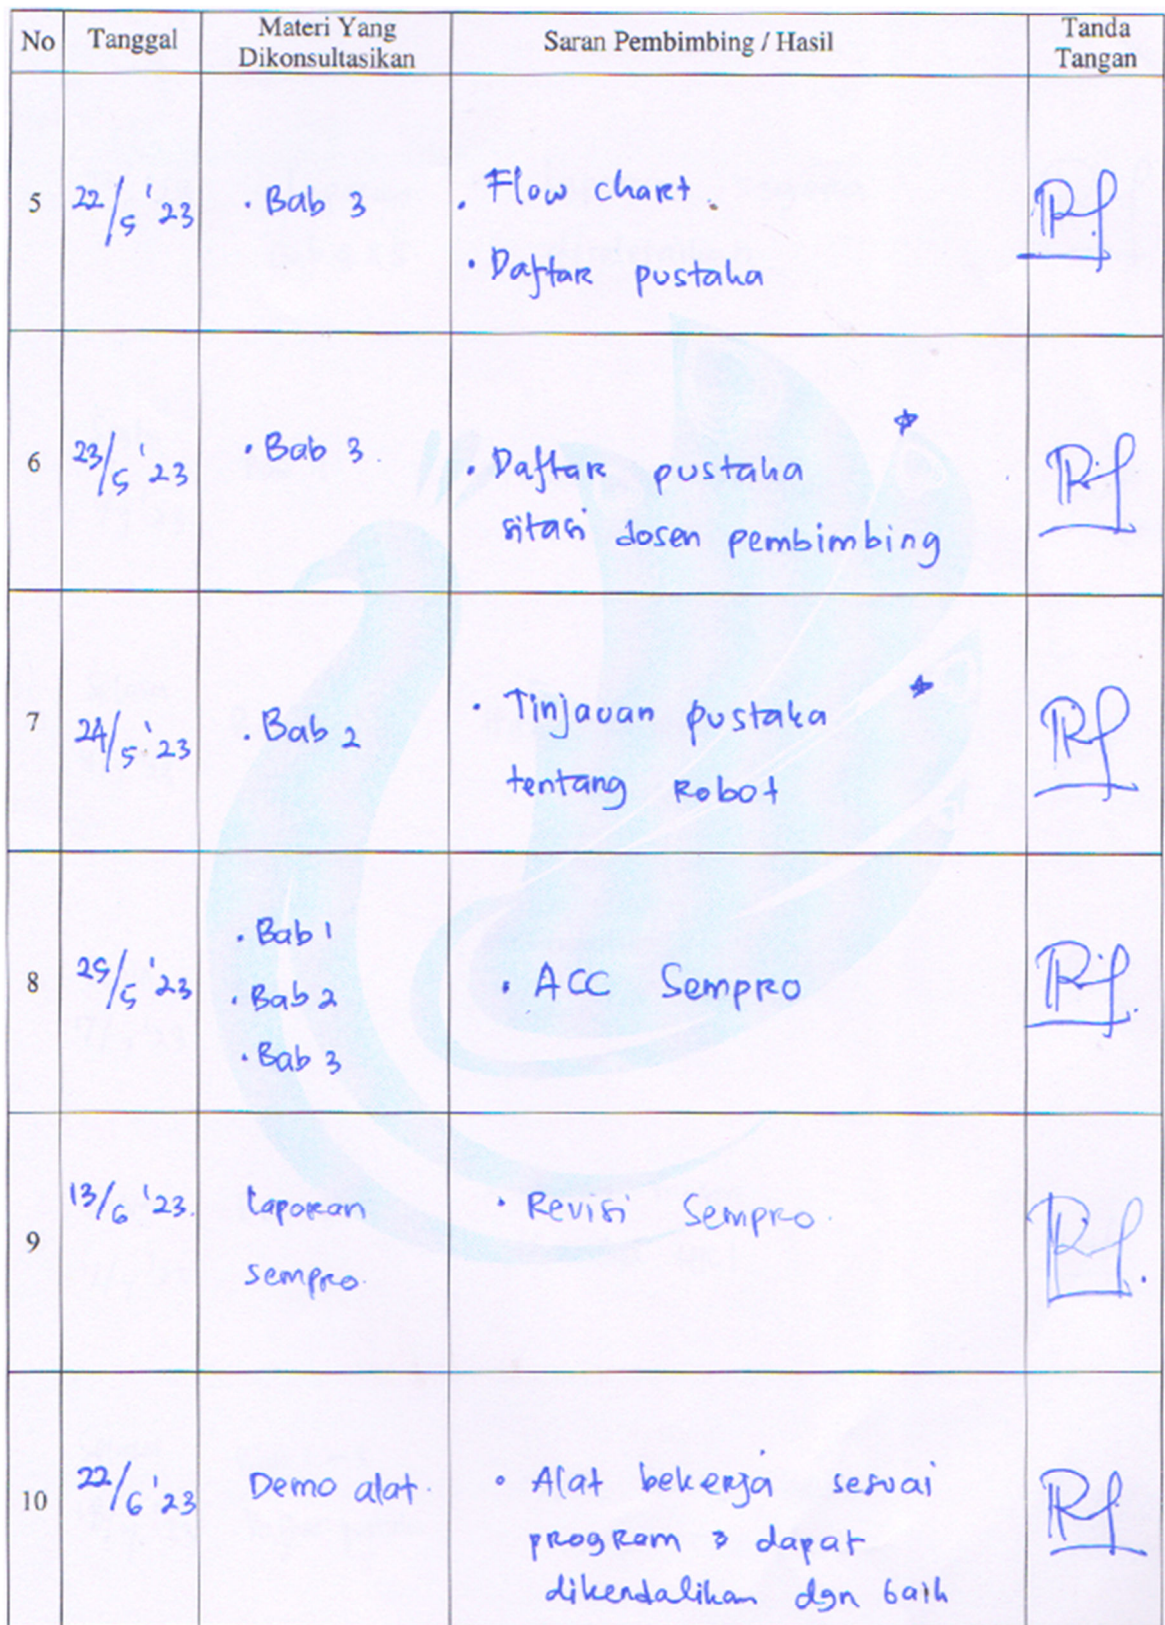 No Tanggal Materi Yang Dikonsultasikan Saran Pembimbing / Hasil Tanda Tangan
5 22/5 '23 · Bab 3 · Flow chart.
· Daftar pustaka
6 23/5 '23 · Bab 3. · Daftar pustaka
sitasi dosen pembimbing
7 24/5 '23 · Bab 2 · Tinjauan pustaka
tentang Robot
8 25/5 '23 · Bab 1
· Bab 2 · ACC Sempro
· Bab 3
9 13/6 '23. Laporan · Revisi Sempro.
sempro.
10 22/6 '23 Demo alat. · Alat bekerja sesuai
program & dapat
dikendalikan dgn baik